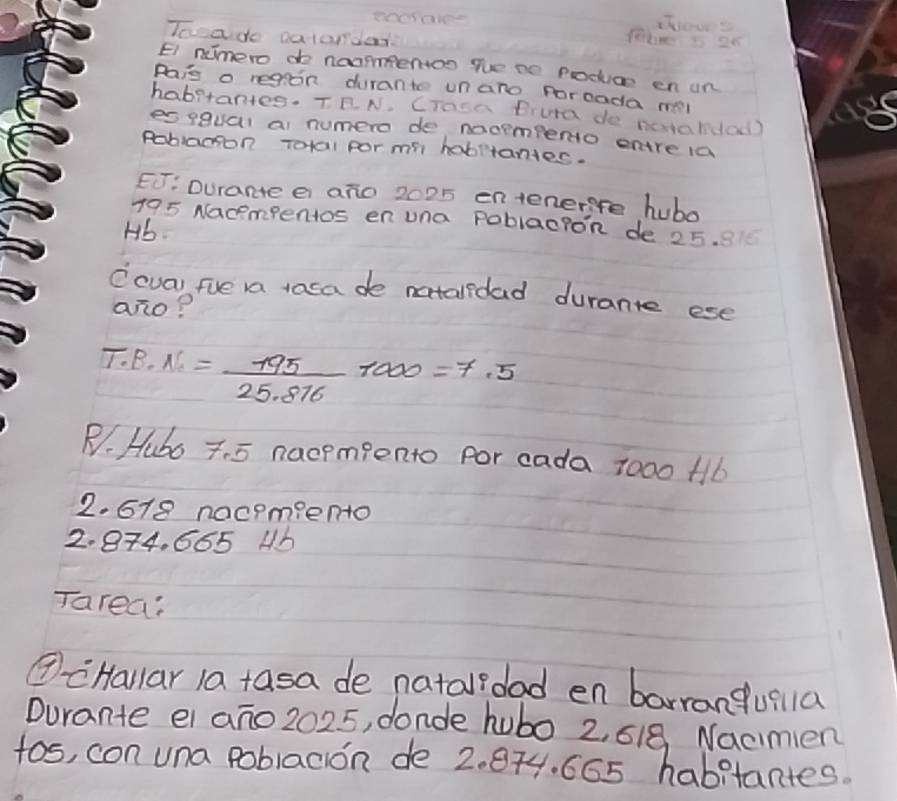 Tasa de natalidad
Jueves
5 26
El número de nacimientos que se produce en un
País o región durante un año por cada mil
habitantes. T.B.N. (Tasa Bruta de natalidad)
es igual al numero de nacimiento entre la
Población Total por mil habitantes.
EJ: Durante el año 2025 en tenerife hubo
195 Nacimientos en una Población de 25.816
Hb.
¿cual fue la tasa de natalidad durante ese
año?
T.B.N. = 195 / 25.816 1000 = 7.5
R/. Hubo 7.5 nacimiento por cada 1000 Hb
2.618 nacimiento
2.874.665 Hb
Tarea:
① ¿Hallar la tasa de natalidad en barranquilla
Durante el año 2025, donde hubo 2,618 Nacimien
tos, con una población de 2.874.665 habitantes.